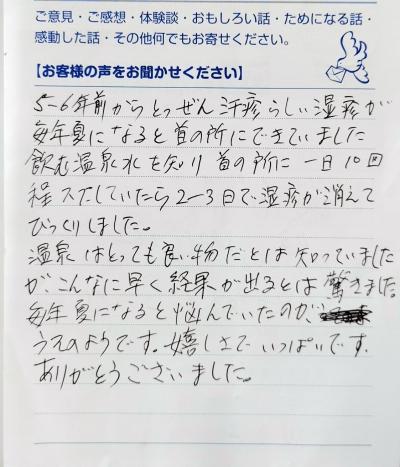 ご意見・ご感想・体験談・おもしろい話・ためになる話・
感動した話・その他何でもお寄せください。
【お客様の声をお聞かせください】
5~6年前からとつぜん汗疹らしい湿疹が
毎年夏になると首の所にできていました
飲む温泉水を知り首の所に一日10回
程スプしていたら2~3日で湿疹が消えて
びっくりしました。
温泉はとっても良い物だとは知っていました
が、こんなに早く結果が出るとは驚きました。
毎年夏になると悩んでいたのが、
うそのようです。嬉しさでいっぱいです。
ありがとうございました。